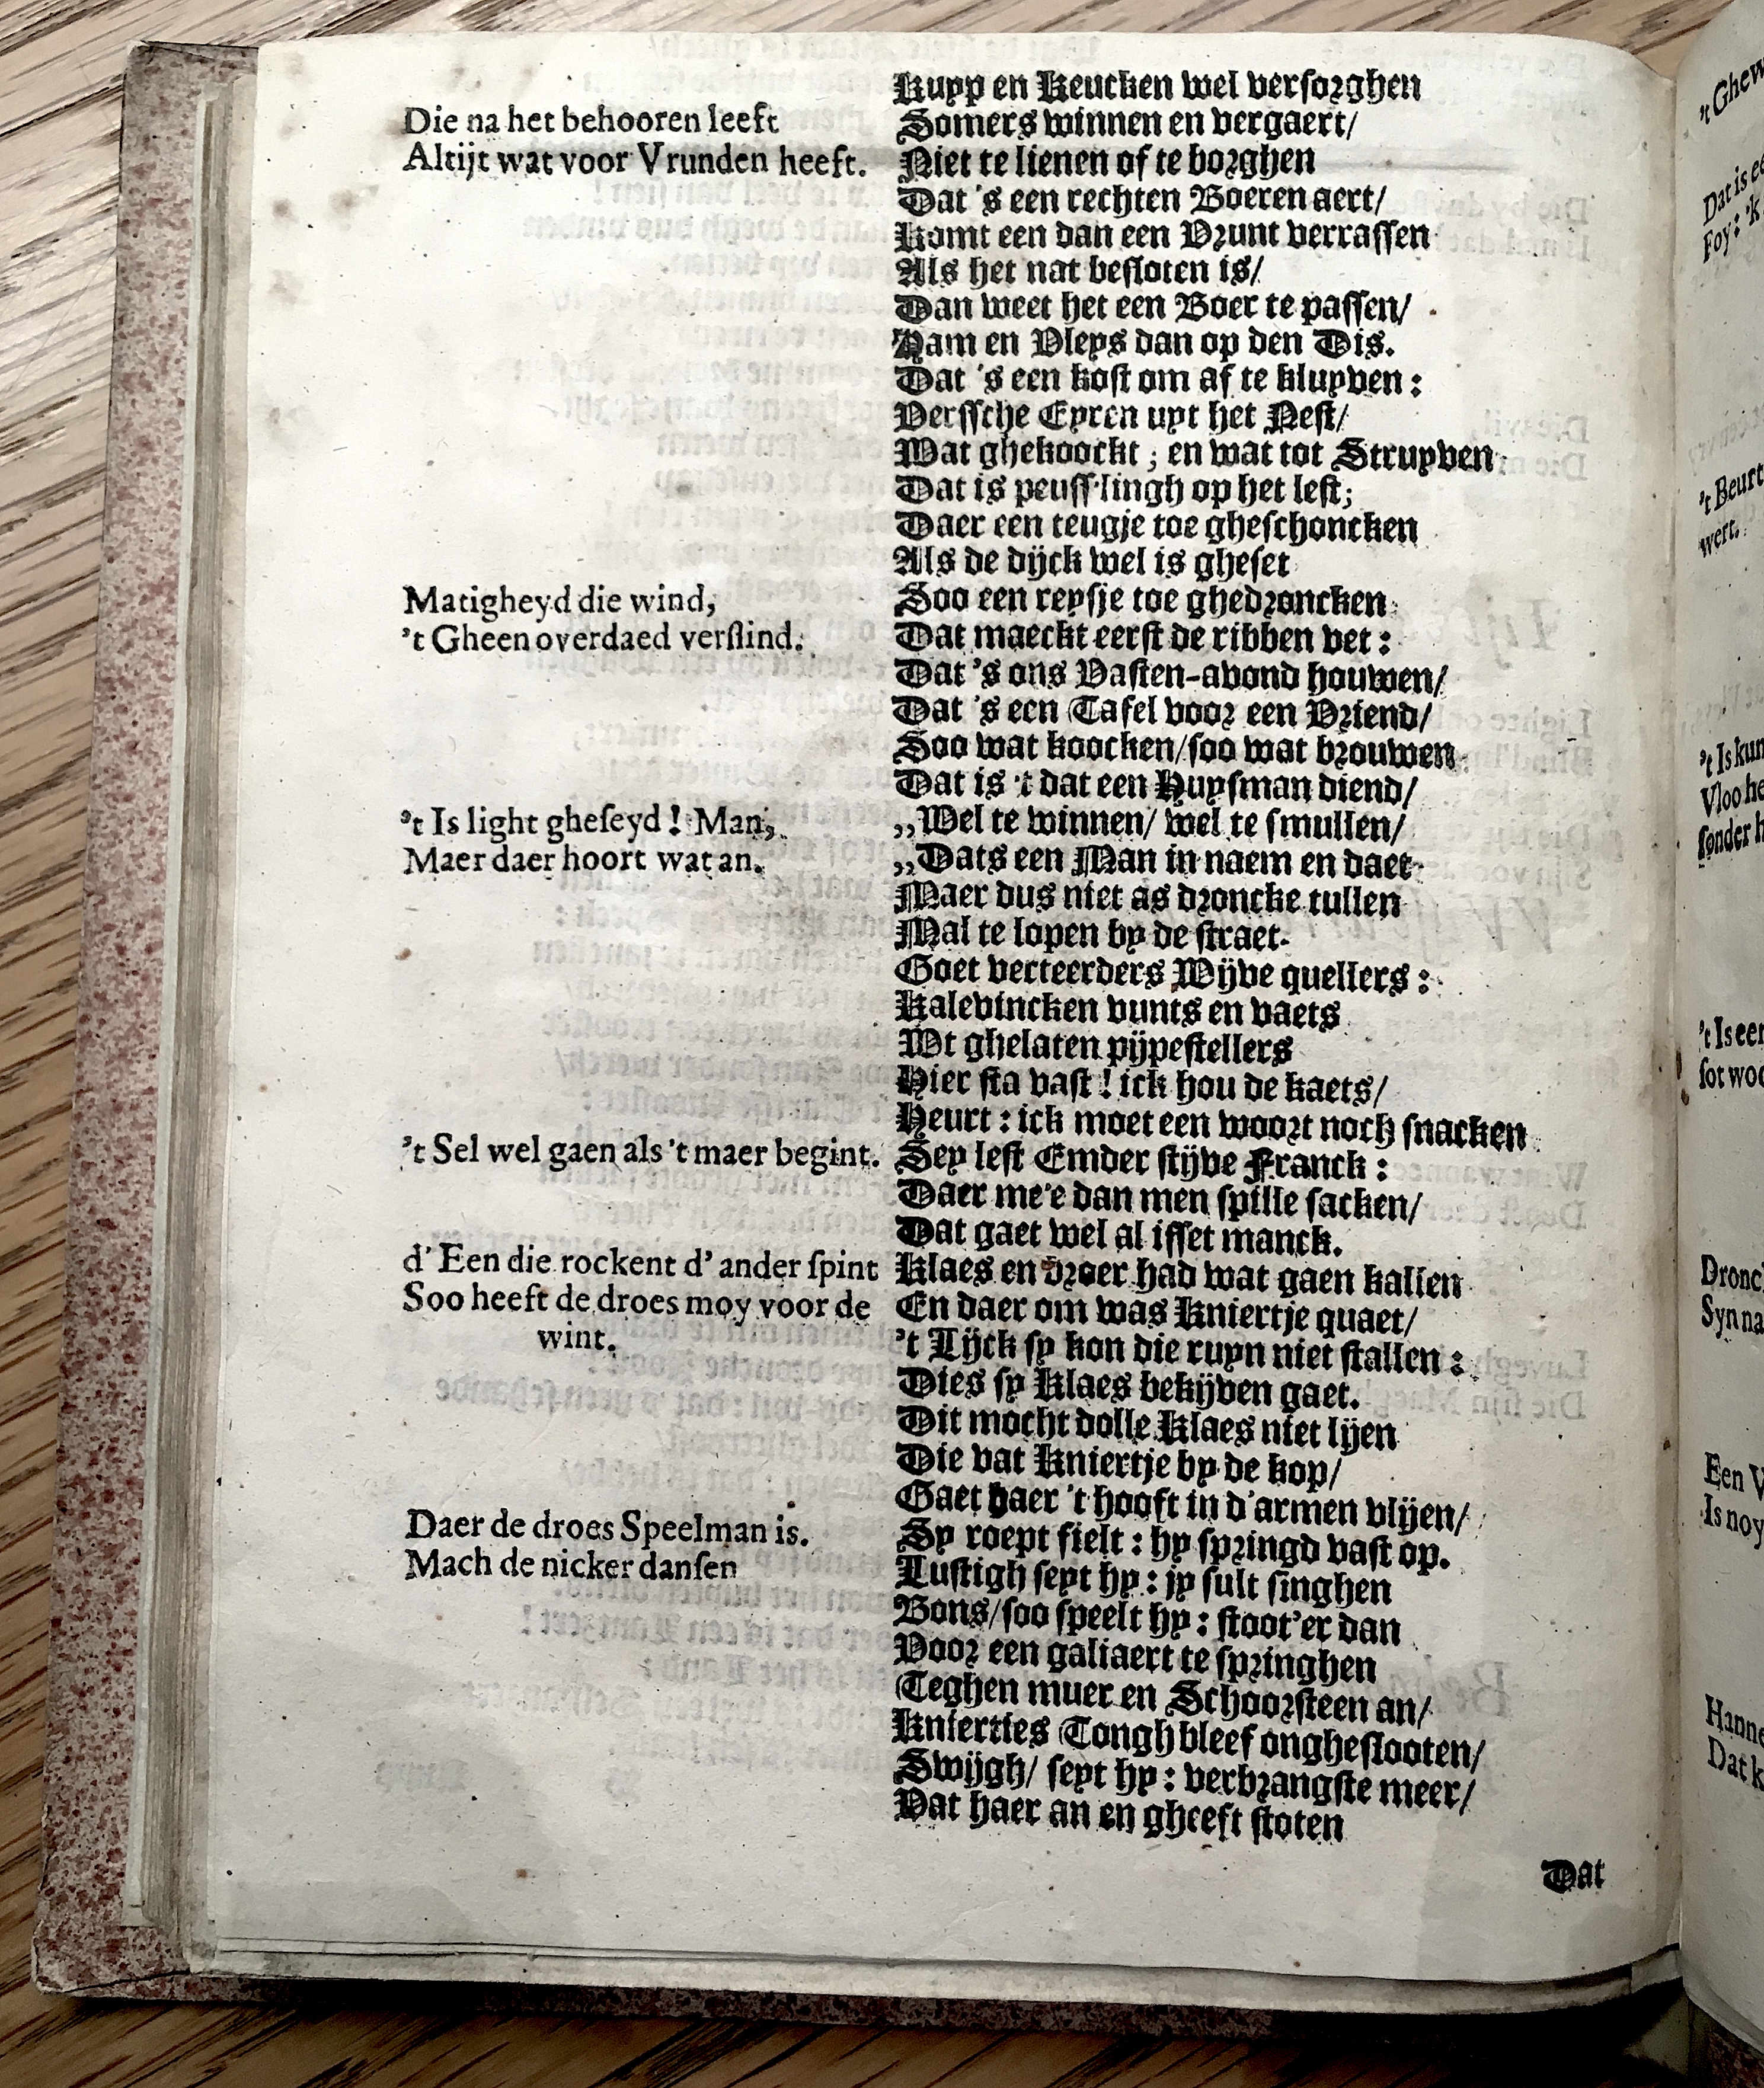 Kupp en Keucken wel versorghen
Die na het behooren leeft
Somers winnen en vergaert/
Altijt wat voor Vrunden heeft.
Niet te lienen of te borghen
Dat 's een rechten Boeren aert/
Komt een dan een Vrunt verrassen
Als het nat besloten is/
Dan weet het een Boer te passen/
Ham en Vleys dan op den Dis.
Dat 's een kost om af te kluyven:
Verssche Eyren uyt het Nest/
Wat ghekoockt; en wat tot Struyven
Dat is peuss'lingh op het lest;
Daer een teugje toe gheschoncken
Als de dijck wel is gheset
Matigheyd die wind,
Soo een reysje toe ghedroncken
't Gheen overdaed verslind.
Dat maeckt eerst de ribben vet:
Dat 's ons Vasten-avond houwen/
Dat 's een Tafel voor een Vriend/
Soo wat koocken/soo wat brouwen
Dat is 't dat een Huysman diend/
't Is light gheseyd! Man,
,,Wel te winnen/ wel te smullen/
Maer daer hoort wat an.
,,Dats een Man in naem en daet
Maer dus niet as droncke tullen
Mal te lopen by de straet.
Goet verteerders Wijve quellers:
Kalevincken vunts en vaets
Wt ghelaten pijpestellers
Hier sta vast! ick hou de kaets/
Heurt: ick moet een woort noch snacken
't Sel wel gaen als 't maer begint.
Sey lest Emder stijve Franck:
Daer me'e dan men spille sacken/
Dat gaet wel al isset manck.
d' Een die rockent d' ander spint
Klaes en droer had wat gaen kallen
Soo heeft de droes moy voor de
wint.
En daer om was Kniertje quaet/
't Lijck sy kon die ruyn niet stallen:
Dies sy Klaes bekijven gaet.
Dit mocht dolle Klaes niet lijen
Die vat Kniertje by de kop/
Gaet haer 't hooft in d'armen vlijen/
Daer de droes Speelman is.
Sy roept fielt: hy springd vast op.
Mach de nicker dansen
Lustigh seyt hy: jy sult singhen
Bons/soo speelt hy: stoot'er dan
Voor een galiaert te springhen
Teghen muer en Schoorsteen an/
Knierties Tongh bleef onghesslooten/
Swijgh/ seyt hy: verbrangste meer/
Vat haer an en gheeft stoten
Dat